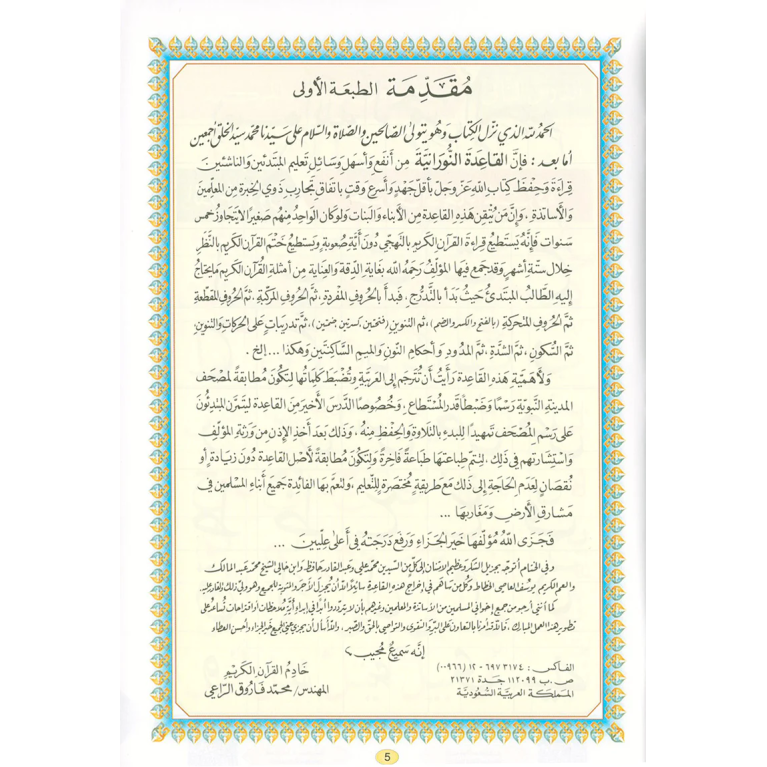 مُقَدِّمَة الطبعَة الأولى
الحمدُ لله الذي نزّل الكتاب وَهُوَ يتولى الصالحين والصلاة والسلام على سيّدنا محمد سيّد الخلق أجمعين
أما بعد : فإنَّ القَاعِدَة النُّورَانيَّة مِن أنفع وَأسهل وَسَائل تعليم المبتدئين والناشئين
قِرَاءَة وَحِفظ كتاب الله عَزّ وَجلّ بأقلّ جَهدٍ وَأسرع وَقتٍ باتفاق تجارب ذوي الخبرة مِن المعلّمين
وَالأسَاتذة . وَإنَّ مَن يُتقِن هَذِهِ القاعدة مِن الأبناء وَالبنات وَلو كان الوَاحِدُ مِنهُم صَغيرًا لا يتجَاوز خمس
سَنوات فَإنَّهُ يَستَطيعُ قِراءَة القرآن الكريم بالتهجي دُونَ أيَّة صُعوبَةٍ وَيَستَطيعُ خَتم القرآن الكريم بالنَّظَرِ
خِلال سِتَّة أشهرٍ وَقد جمع فيهَا المؤلّف رَحِمَهُ الله بغَايَة الدِّقّة والعِنَاية مِن أمثلة القُرآن الكريم مَا يحتَاجُ
إليهِ الطَّالبُ المبتَدئُ حَيثُ بَدأ بالتَّدَرُّج . فَبدأ بالحُروف المفردَة ، ثمَّ الحُروف المركَّبة ، ثمَّ الحُروف المقطّعة
ثمَّ الحُروف المتحَركة (بالفتح والكسر والضم) ، ثم التنوين (فتحتين ، كسرتين ، ضمتين) ، ثمَّ تدريبات عَلى الحركات والتنوين
ثمَّ السُّكون ، ثمَّ الشَّدّة ، ثمَّ المدُود وأحكام النون والميم السَّاكنتَين وَهكذا ... إلخ .
وَلأهَمِّيَّة هَذِهِ القَاعدة رَأيتُ أن تُترجَم إلى العَرَبيَّة وَتُضبَط كلِماتُها لِتكُونَ مُطابقةً لمصْحَف
المدينةِ النَّبوَيّة رَسْمًا وَضَبطًا قَدرَ المُستَطاع . وَخُصُوصًا الدَّرسَ الأخيرَ مِنَ القاعدة ليتمَرَّن المبتَدِئُونَ
عَلى رَسْم المُصْحَف تمهيدًا للبدء بالتِّلاوةِ وَالحِفظِ مِنهُ ، وَذلك بَعدَ أخذِ الإذنِ من وَرثةِ المؤلّف
وَاستِشَارتهم في ذَلِك . ليتمّ طِباعتهَا طِبَاعةً فَاخِرَةً وَلِتَكُونَ مُطَابقَةً لأصل القَاعِدَة دُونَ زيَادَة أو
نُقصَان لِعَدَم الحَاجَة إلى ذلك مَعَ طريقَةٍ مُختَصرَةٍ للتَّعليم ، وَلتعُمَّ بهَا الفَائدة جَميعَ أبنَاء المسلمين في
مَشَارق الأرض وَمَغَاربهَا ...
فَجَزى اللهُ مُؤلّفهَا خَيرَ الجَزاء وَرَفَعَ دَرَجَتهُ في أعلى عِلِّيين ...
وفي الختام أتوجّه بجزيل الشكر وعظيم الامتنان إلى كلٍّ من السيد بن محمد علي وعبد القادر حافظ وابن خالي الشيخ محمد عبد المالك
والعم الكريم يوسف العاصي الخطاط وكل من ساهم في إخراج هذه القاعدة سائلاً الله أن يجزل الأجر والمثوبة للجميع وهو ولي ذلك والقادر عليه
كما أنني أرجو من جميع إخواني المسلمين من الأساتذة والمعلمين وغيرهم بأن لا يترددوا أبداً في إبداء أيّة ملاحظات أو اقتراحات تُساعدُ على
تطوير هذا العمل المبارك ، فالله قد أمرنا بالتعاون على البرّ والتقوى والتواصي بالحق والصبر . والله أسأل أن يجزي عني الجميع خير الجزاء وأحسن العطاء
إنّه سَميعٌ مُجيب
الفاكس : ٦٩٧٣١٧٤ - ١٢ (٠٠٩٦٦)
ص . ب ١١٢٠٩٩ جدة ٢١٣٧١
المملكة العربيّة السّعُوديَّة
خَادِمُ القرآن الكَريم
المهندس/ محمّد فَاروق الرّاعي
5